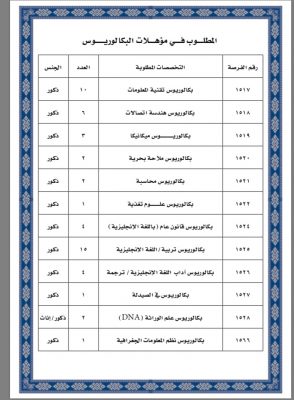 المطلوب في مؤهلات البكالوريوس
رقم الفرصة التخصصات المطلوبة العدد الجنس
١٥١٧ بكالوريوس تقنية المعلومات ١٠ ذكور
١٥١٨ بكالوريوس هندسة اتصالات ٦ ذكور
١٥١٩ بكالوريوس ميكانيكا ٣ ذكور
١٥٢٠ بكالوريوس ملاحة بحرية ٢ ذكور
١٥٢١ بكالوريوس محاسبة ٢ ذكور
١٥٢٢ بكالوريوس علوم تغذية ١ ذكور
١٥٢٤ بكالوريوس قانون عام (باللغة الإنجليزية) ٤ ذكور
١٥٢٥ بكالوريوس تربية / اللغة الإنجليزية ١٥ ذكور
١٥٢٦ بكالوريوس آداب اللغة الإنجليزية / ترجمة ٤ ذكور
١٥٢٧ بكالوريوس في الصيدلة ١ ذكور
١٥٢٨ بكالوريوس علم الوراثة (DNA) ٢ ذكور/إناث
١٥٦٦ بكالوريوس نظم المعلومات الجغرافية ١ ذكور